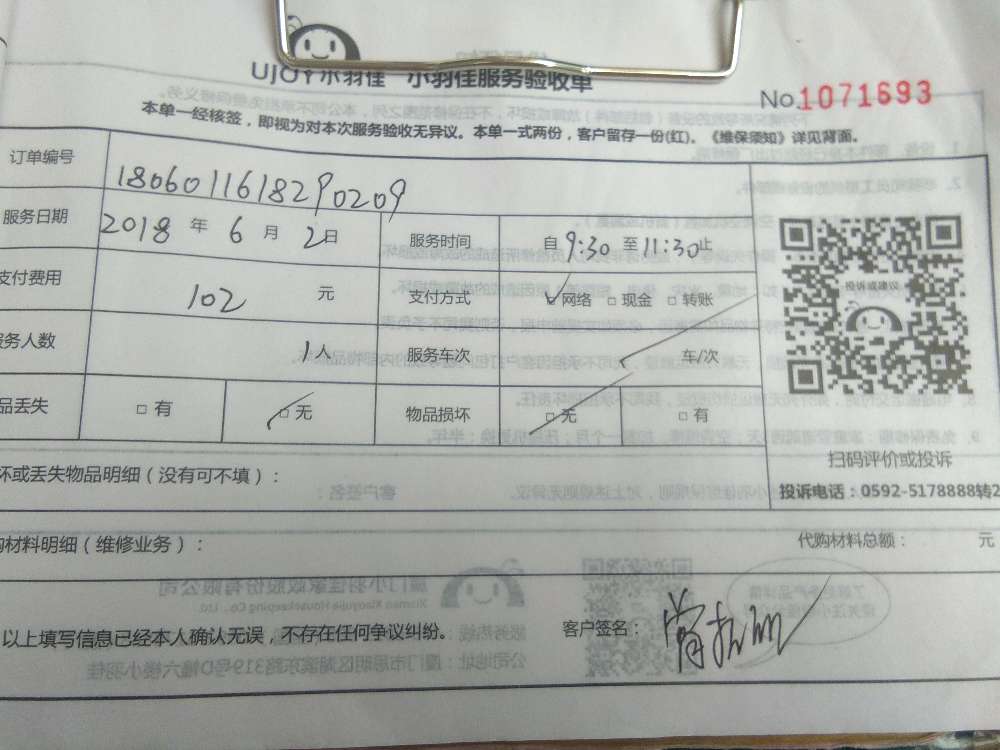 UJOY小羽佳 小羽佳服务验收单
No.1071693
本单一经核签，即视为对本次服务验收无异议。本单一式两份，客户留存一份(红)。《维保须知》详见背面。
订单编号 180601161829 0209
服务日期 2018 年 6 月 2日 服务时间 自 9:30 至 11:30止
支付费用 102 元 支付方式 □网络 □现金 □转账
务人数 1人 服务车次 车/次
品丢失 □有 □无 物品损坏 □无 □有
投诉或建议
扫码评价或投诉
投诉电话：0592-5178888转2
坏或丢失物品明细（没有可不填）：
购材料明细（维修业务）： 代购材料总额： 元
以上填写信息已经本人确认无误，不存在任何争议纠纷。 客户签名：